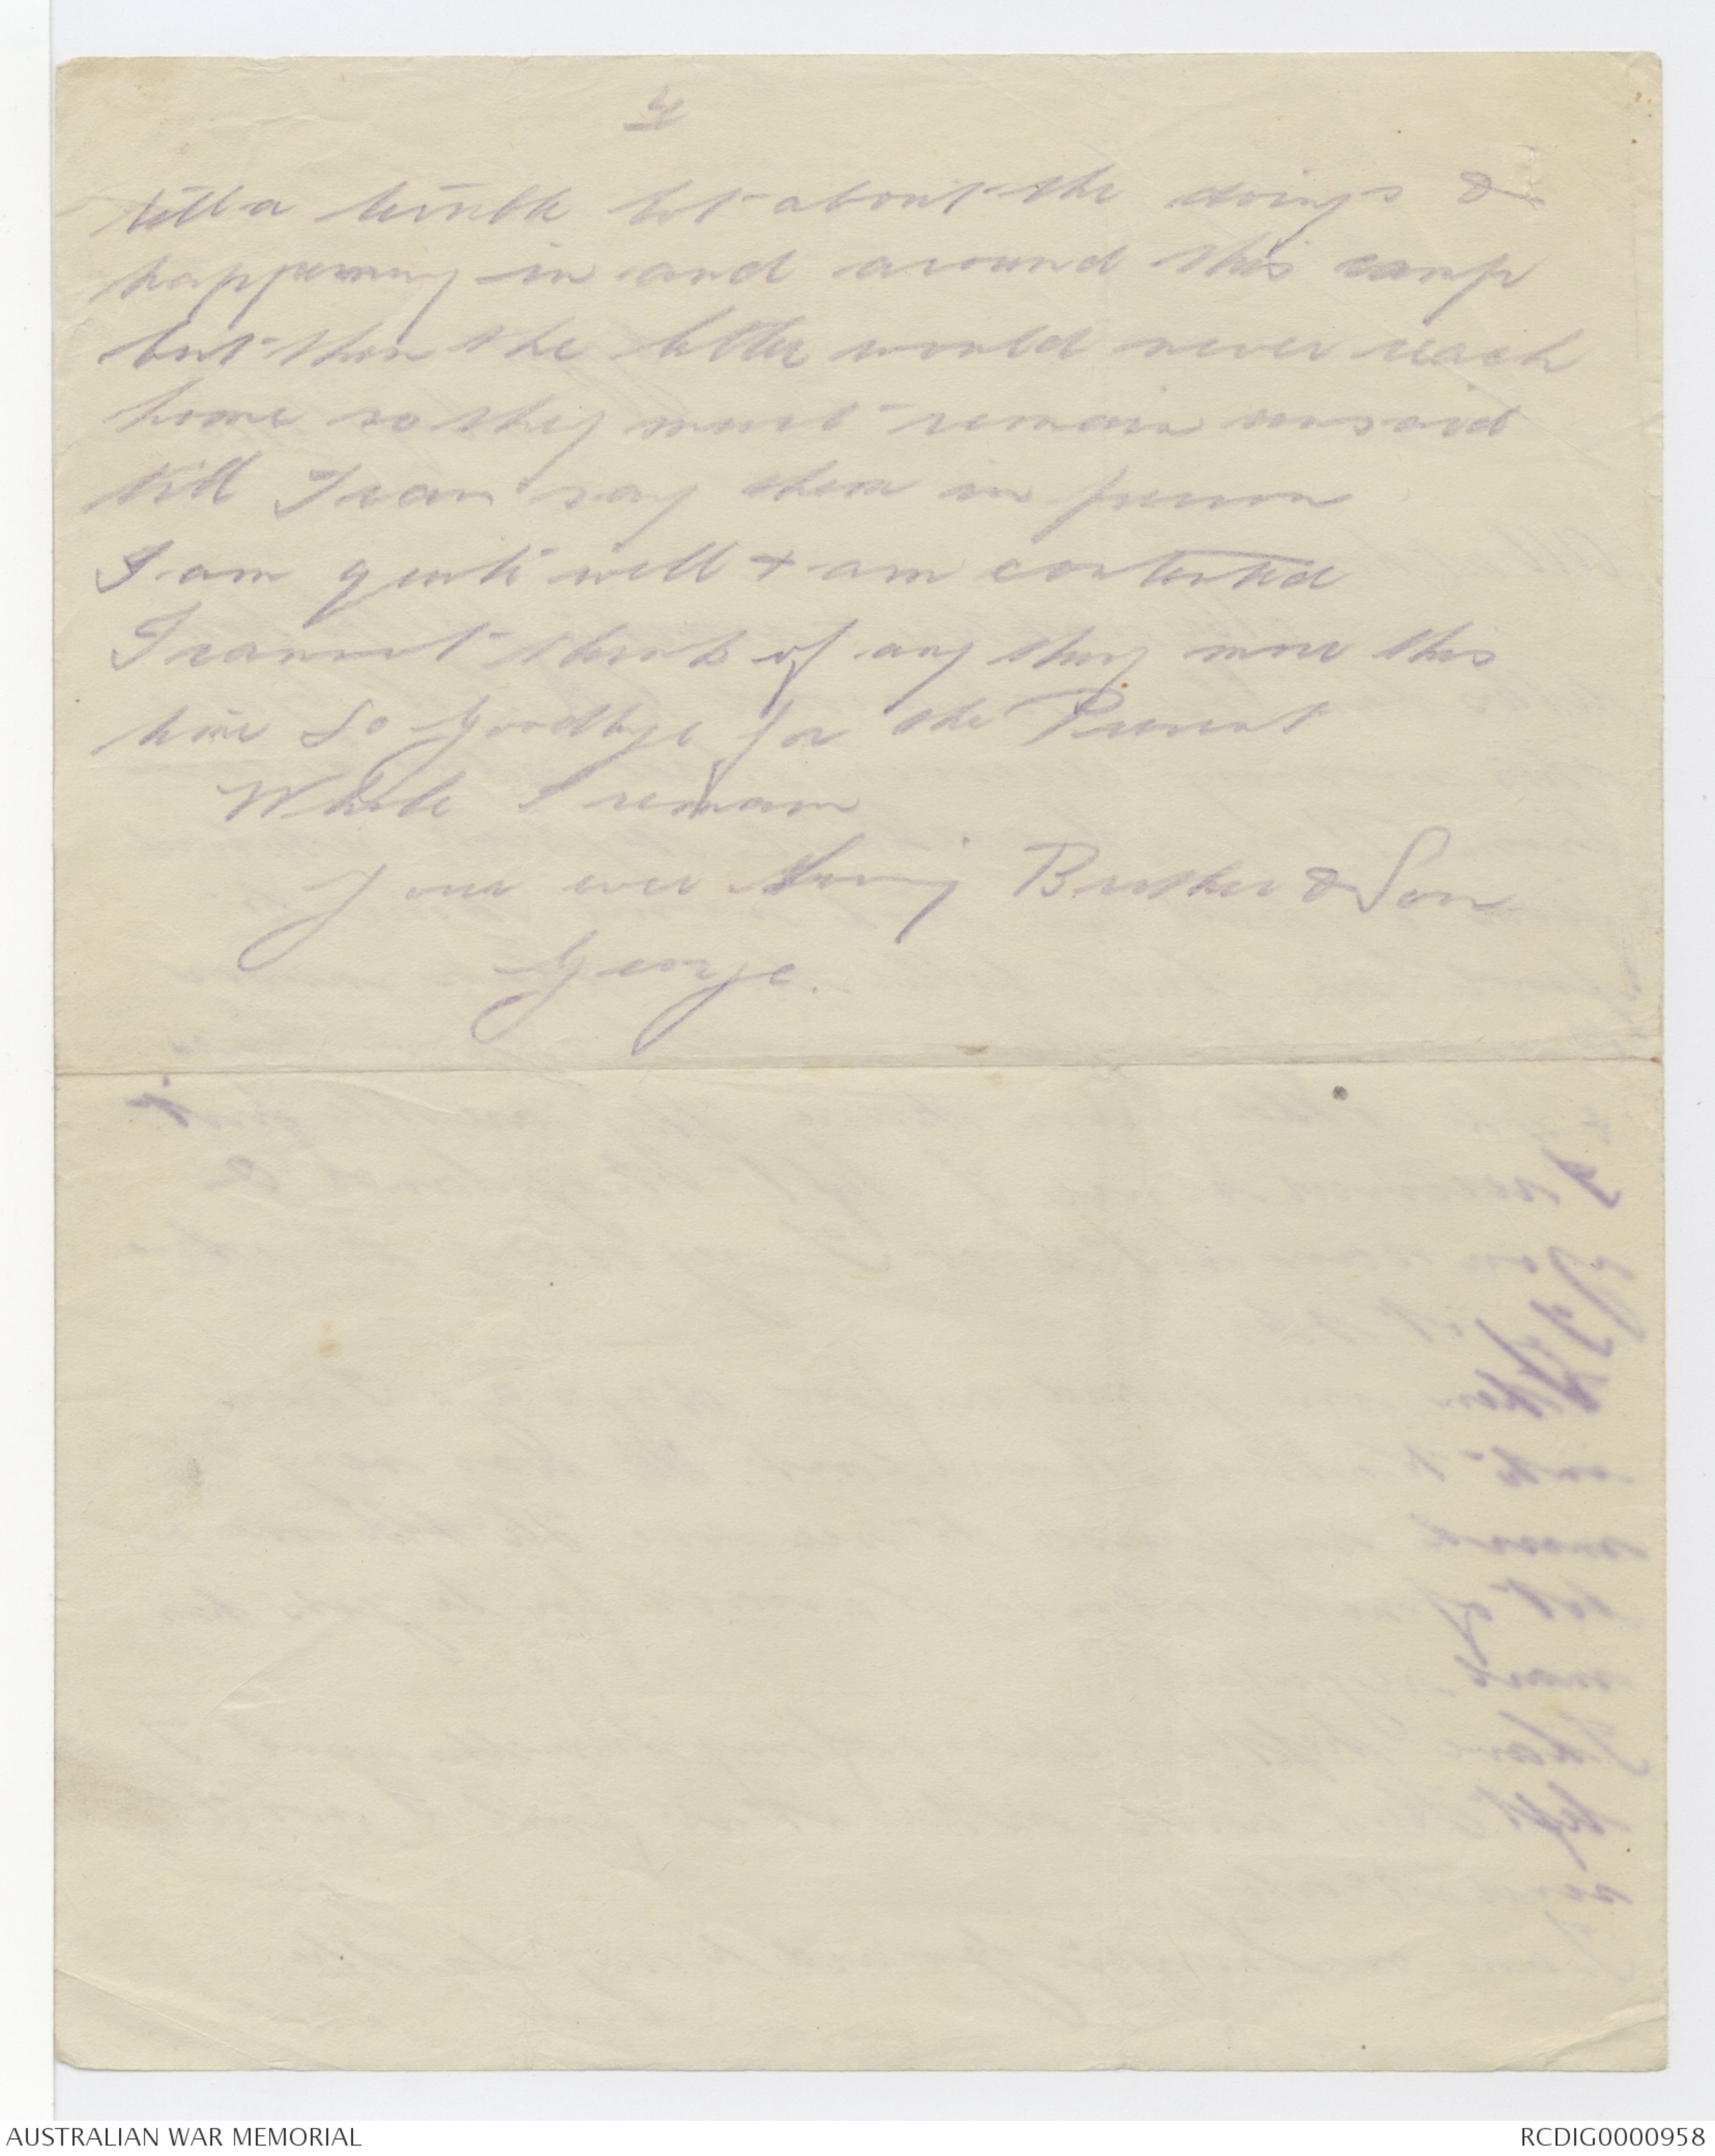 4
tell a terrible lot about the doings &
happening in and around this camp
but then the letter would never reach
home so they must remain unsaid
till I can say them in person
I am quite well + am contented
I cannot think of any thing more this
time So Goodbye for the Present
While I remain
Your ever loving Brother & Son
George.
AUSTRALIAN WAR MEMORIAL
RCDIG0000958